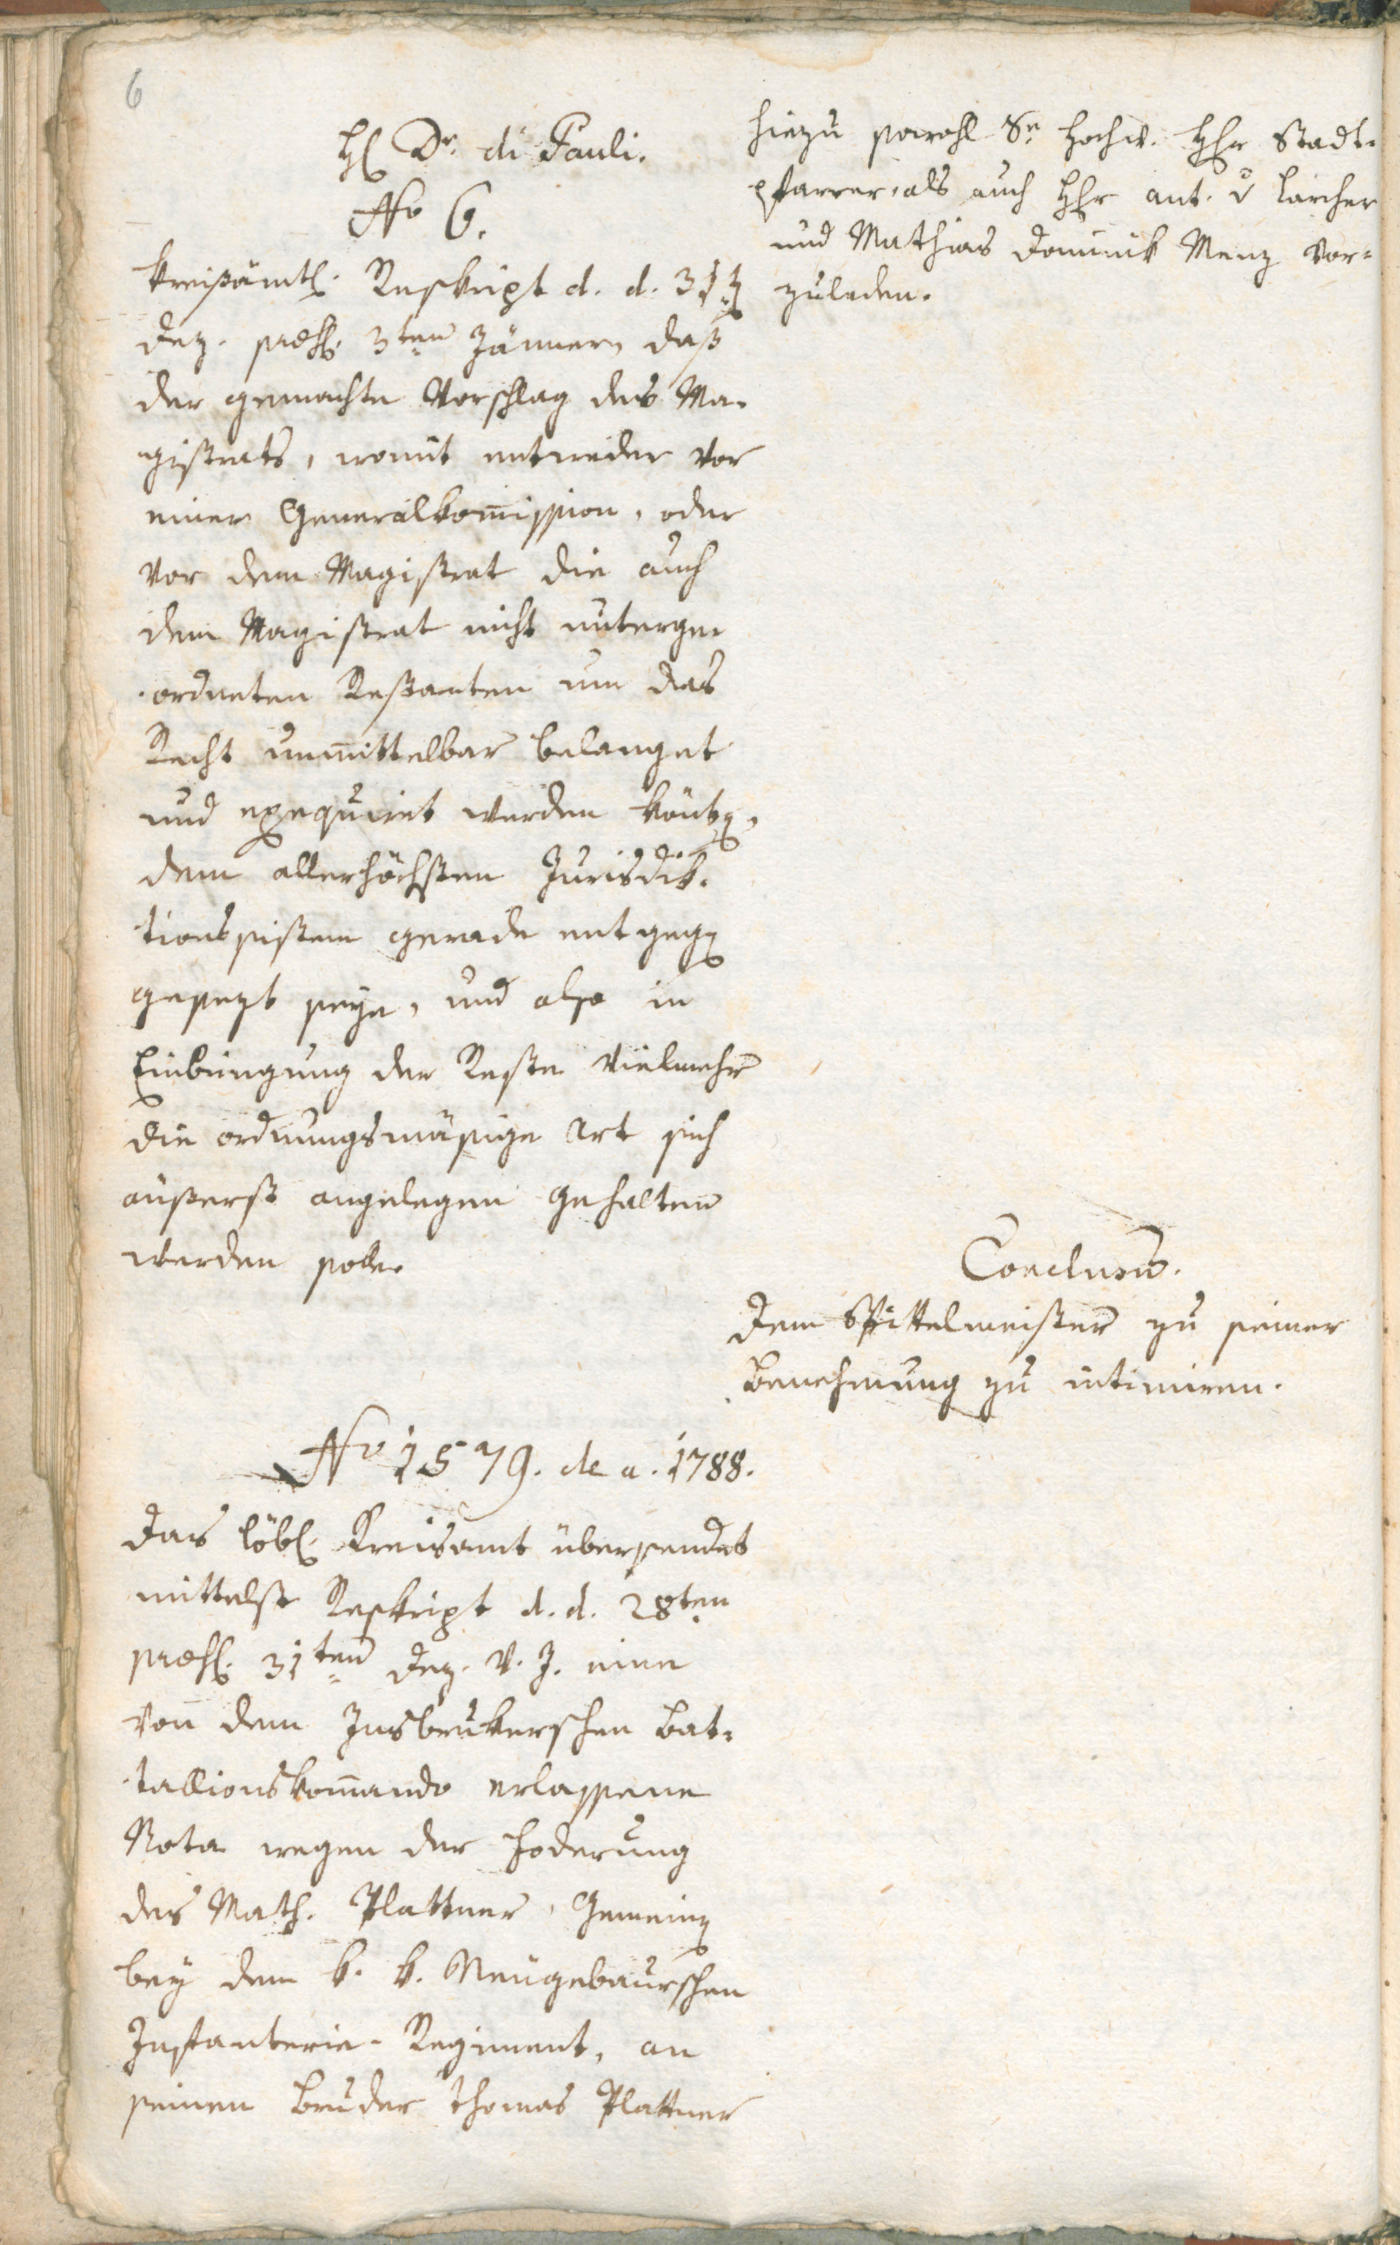 6
H. Dr. di Pauli.
No 6.
kreißämtl. Reskript d. d. 31t
Dez. præs. 3ten Jänner, daß
der gemachte Vorschlag des Ma-
gistrats, womit entweder vor
einer Generalkom̅ission, oder
vor dem Magistrat die auch
dem Magistrat nicht unterge-
ordneten Restanten um das
Recht unmittelbar belanget
und exequiret werden könten,
dem allerhöchsten Jurisdik-
tionssistem gerade entgegen
gesezt seye, und also in
Einbringung der Reste vielmehr
die ordnungsmäsige Art sich
äußerst angelegen gehalten
werden solle.
No 1579. de a. 1788.
Das löbl. Kreisamt übersendet
mittelst Reskript d. d. 28ten
præs. 31ten Dez. v. J. eine
von dem Insbrukerschen Bat-
tallionskom̅ando erlassene
Nota wegen der Foderung
des Math. Plattner, Gemeinen
bey dem k. k. Neugebaurschen
Infanterie-Regiment, an
seinen Bruder Thomas Plattner
hiezu sowohl Se Hochw. Hr Stadt-
pfarrer, als auch Hr Ant. v Larcher
und Mathias Dominik Menz vor-
zuladen.
Conclusum.
Dem Spittelmeister zu seiner
Benehmung zu intimiren.